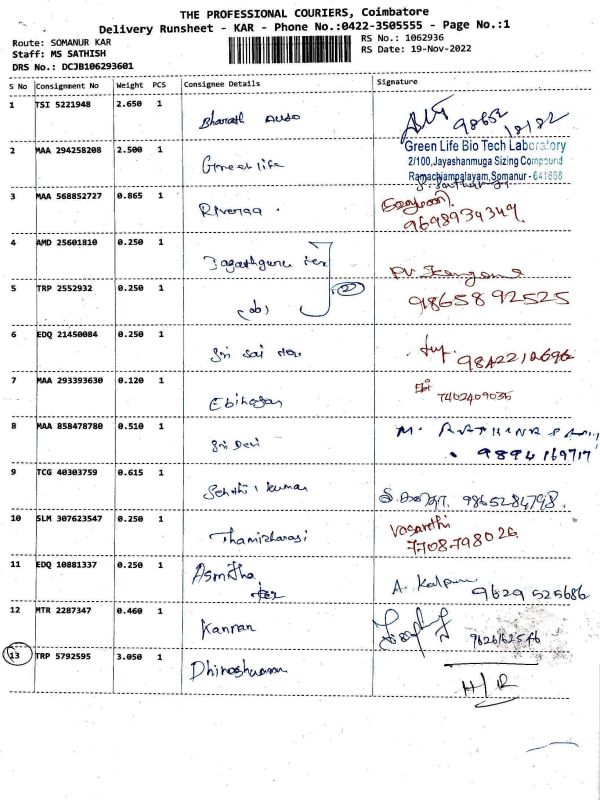 THE PROFESSIONAL COURIERS, Coimbatore
Delivery Runsheet - KAR - Phone No.:0422-3505555 - Page No.:1
Route: SOMANUR KAR
RS No.: 1062936
Staff: MS SATHISH
RS Date: 19-Nov-2022
DRS No.: DCJB106293601
S No Consignment No Weight PCS Consignee Details Signature
1 TSI 5221948 2.650 1 Bharath Auto 98652 18182
2 MAA 294258208 2.500 1 Green life
Green Life Bio Tech Laboratory
2/100,Jayashanmuga Sizing Compound
Ramachiampalayam, Somanur - 641668
3 MAA 568852727 0.865 1 Riveraa 9698934349
4 AMD 25601810 0.250 1 Jagathguru Tex
5 TRP 2552932 0.250 1 2 9865892525
6 EDQ 21450084 0.250 1 Sri Sai Tex 9842212696
7 MAA 293393630 0.120 1 Ebinasan Ebi
7402409035
8 MAA 858478780 0.510 1 Sri Devi
9894169717
9 TCG 40303759 0.615 1 Senthil kumar 9865284798
10 SLM 307623547 0.250 1 Thamizharasi Vasanthi
7708798026
11 EDQ 10881337 0.250 1 Asmitha Tex A. Kalpana 9629525686
12 MTR 2287347 0.460 1 Kannan 9626162546
13 TRP 5792595 3.050 1
H/R